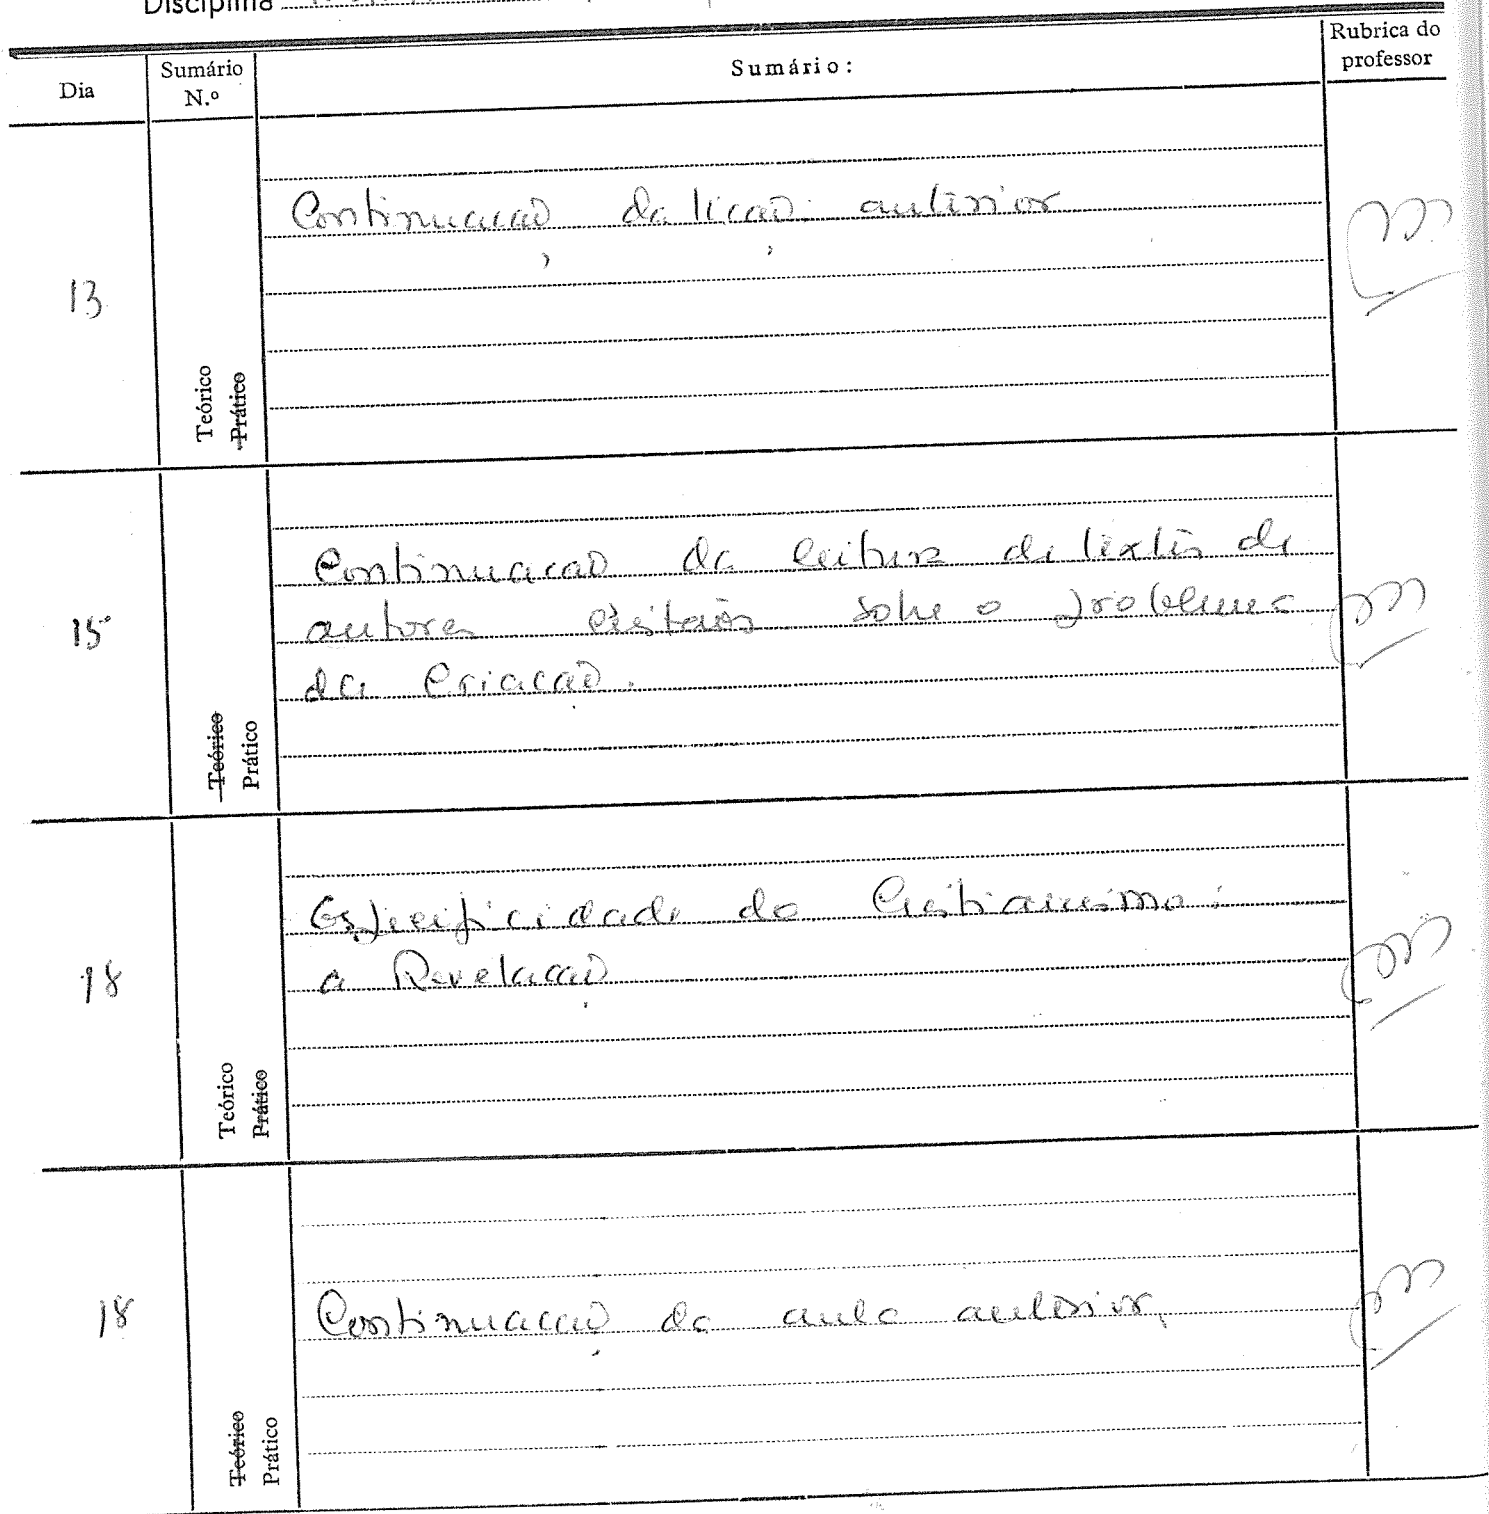 Disciplina
Dia
Sumário N.º
Sumário:
Rubrica do professor
13
Teórico
Prático
Continuação da lição anterior
15
Teórico
Prático
Continuação da leitura de textos de
autores cristãos sobre o problema
da Criação.
18
Teórico
Prático
Especificidade do Cristianismo:
a Revelação
18
Teórico
Prático
Continuação da aula anterior